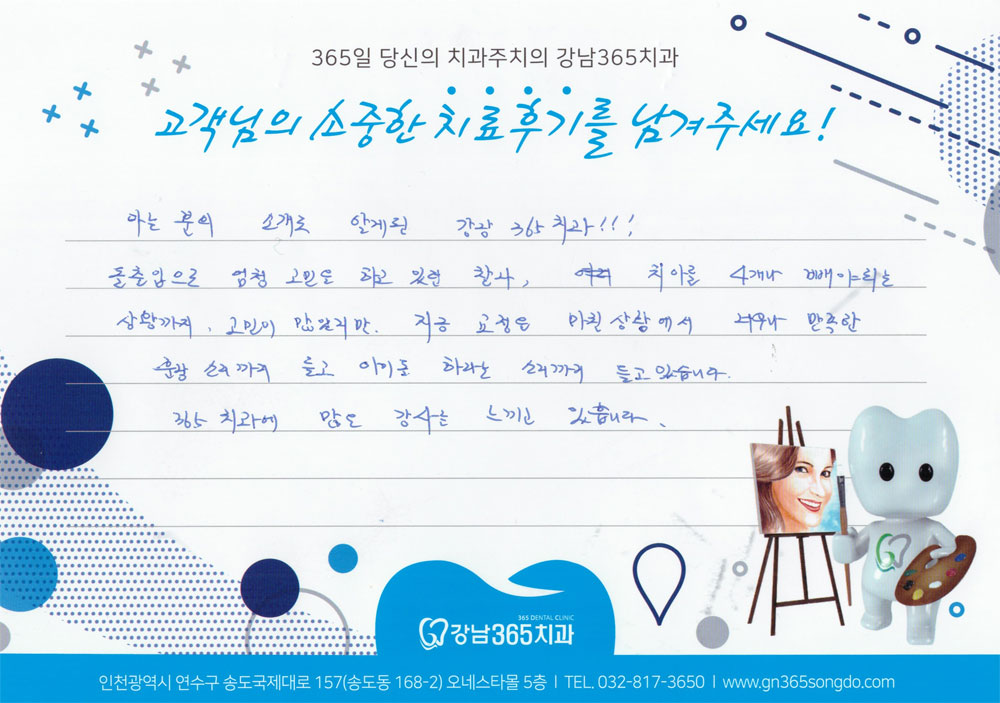 365일 당신의 치과주치의 강남365치과
고객님의 소중한 치료후기를 남겨주세요!
아는 분의 소개로 알게된 강남 365 치과!!!
돌출입으로 엄청 고민을 하고 있던 찰나, 치아를 4개나 빼야되는
상황까지. 고민이 많았지만. 지금 교정을 마친 상황에서 너무나 만족한
소리까지 듣고 하라는 소리까지 듣고 있습니다.
365 치과에 많은 감사를 느끼고 있습니다.
365 DENTAL CLINIC
강남365치과
인천광역시 연수구 송도국제대로 157(송도동 168-2) 오네스타몰 5층 | TEL. 032-817-3650 | www.gn365songdo.com